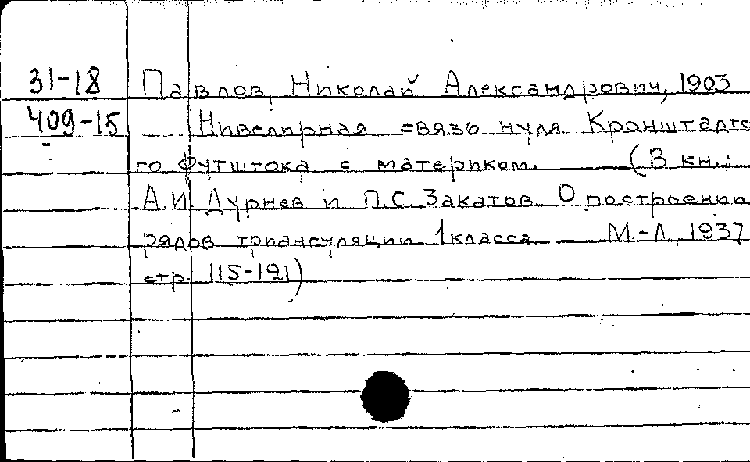 31-18 Павлов, Николай Александрович, 1903
409-15 Нивелирная связь нуля Кронштадтс
го футштока с материком. (В кн.:
А.И. Дурнев и П.С. Закатов. О построении
рядов триангуляции 1 класса. М.-Л., 1937,
стр. 115-121)